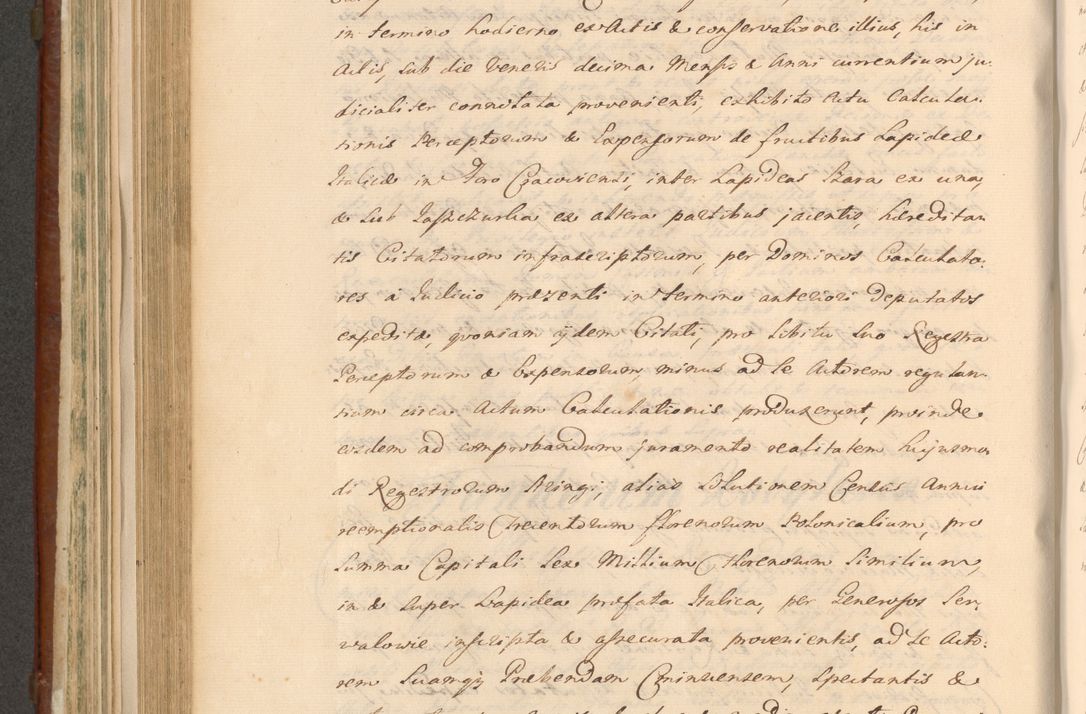 in termino hodierno, ex Actis & conservatione illius, his in
Actis, sub die Veneris decima Mensis & Anni currentium ju-
dicialiter connotata provenienti, exhibito Actu Calcula-
tionis Perceptorum & Expensorum de fructibus Lapideæ
Italicæ in Foro Cracoviensi, inter Lapideas Szara ex una,
& sub Jaszczurka ex altera partibus jacentis, hæreditan
tis Citatorum infrascriptorum, per Dominos Calculato-
res à Judicio præsenti in termino anteriori deputatos
expedito, quoniam ijdem Citati, pro libitu suo Regestra
Perceptorum & Expensorum, minus ad se Actorem regulan-
tium circa Actum Calculationis produxerunt, proinde
eosdem ad comprobandum juramento realitatem hujusmo-
di Regestrorum stringi, alias solutionem Census Annui
reemptionalis Trecentorum florenorum Polonicalium, pro
summa Capitali Sex Millium Florenorum Similium,
in & super Lapidea præfata Italica, per Generosos Ser,
walowie inscripta & assecurata provenientis, ad se Acto-
rem Suamqz Præbendam spectantis &